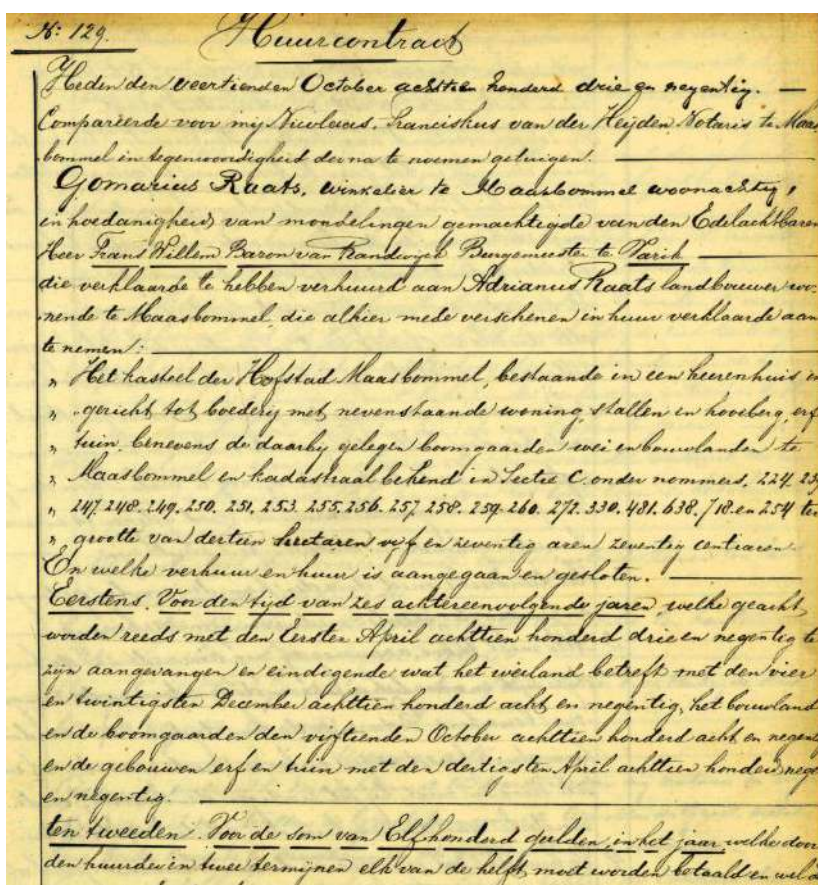 N: 129.
Huurcontract
Heden den veertienden October achttien honderd drie en negentig. —
Compareerde voor mij Nicolaas, Franciskus van der Heijden Notaris te Maas
bommel in tegenwoordigheid der na te noemen getuigen.
Gomarius Raats, winkelier te Maasbommel woonachtig,
in hoedanigheid van mondelingen gemachtigde van den Edelachtbaren
Heer Frans Willem Baron van Randwijck Burgemeester te Varik
die verklaarde te hebben verhuurd aan Adrianus Raats landbouwer wo-
nende te Maasbommel, die alhier mede verschenen in huur verklaarde aan
te nemen:
„ Het kasteel der Hofstad Maasbommel, bestaande in een heerenhuis in
„ gericht tot boederij met nevenstaande woning, stallen en hooiberg, erf
„ tuin, benevens de daarby gelegen boomgaarden wei en bouwlanden te
„ Maasbommel en kadastraal bekend in Sectie C. onder nommers, 224. 239
„ 247. 248. 249. 250. 251. 253. 255. 256. 257. 258. 259. 260. 272. 330. 481. 638. 718. en 254 ter
„ grootte van dertien hectaren vijf en zeventig aren zeventig centiaren.
En welke verhuur en huur is aangegaan en gesloten.
Eerstens. Voor den tijd van zes achtereenvolgende jaren, welke geacht
worden reeds met den Eersten April achttien honderd drie en negentig te
zijn aangevangen en eindigende wat het weiland betreft met den vier
en twintigsten December achttien honderd acht en negentig, het bouwland
en de boomgaarden den vijftienden October achttien honderd acht en negen
en de gebouwen erf en tuin met den dertigsten April achttien honderd nege
en negentig.
ten tweeden. Voor de som van Elfhonderd gulden, in het jaar welke door
den huurder in twee termijnen elk van de helft moet worden betaald en wel d